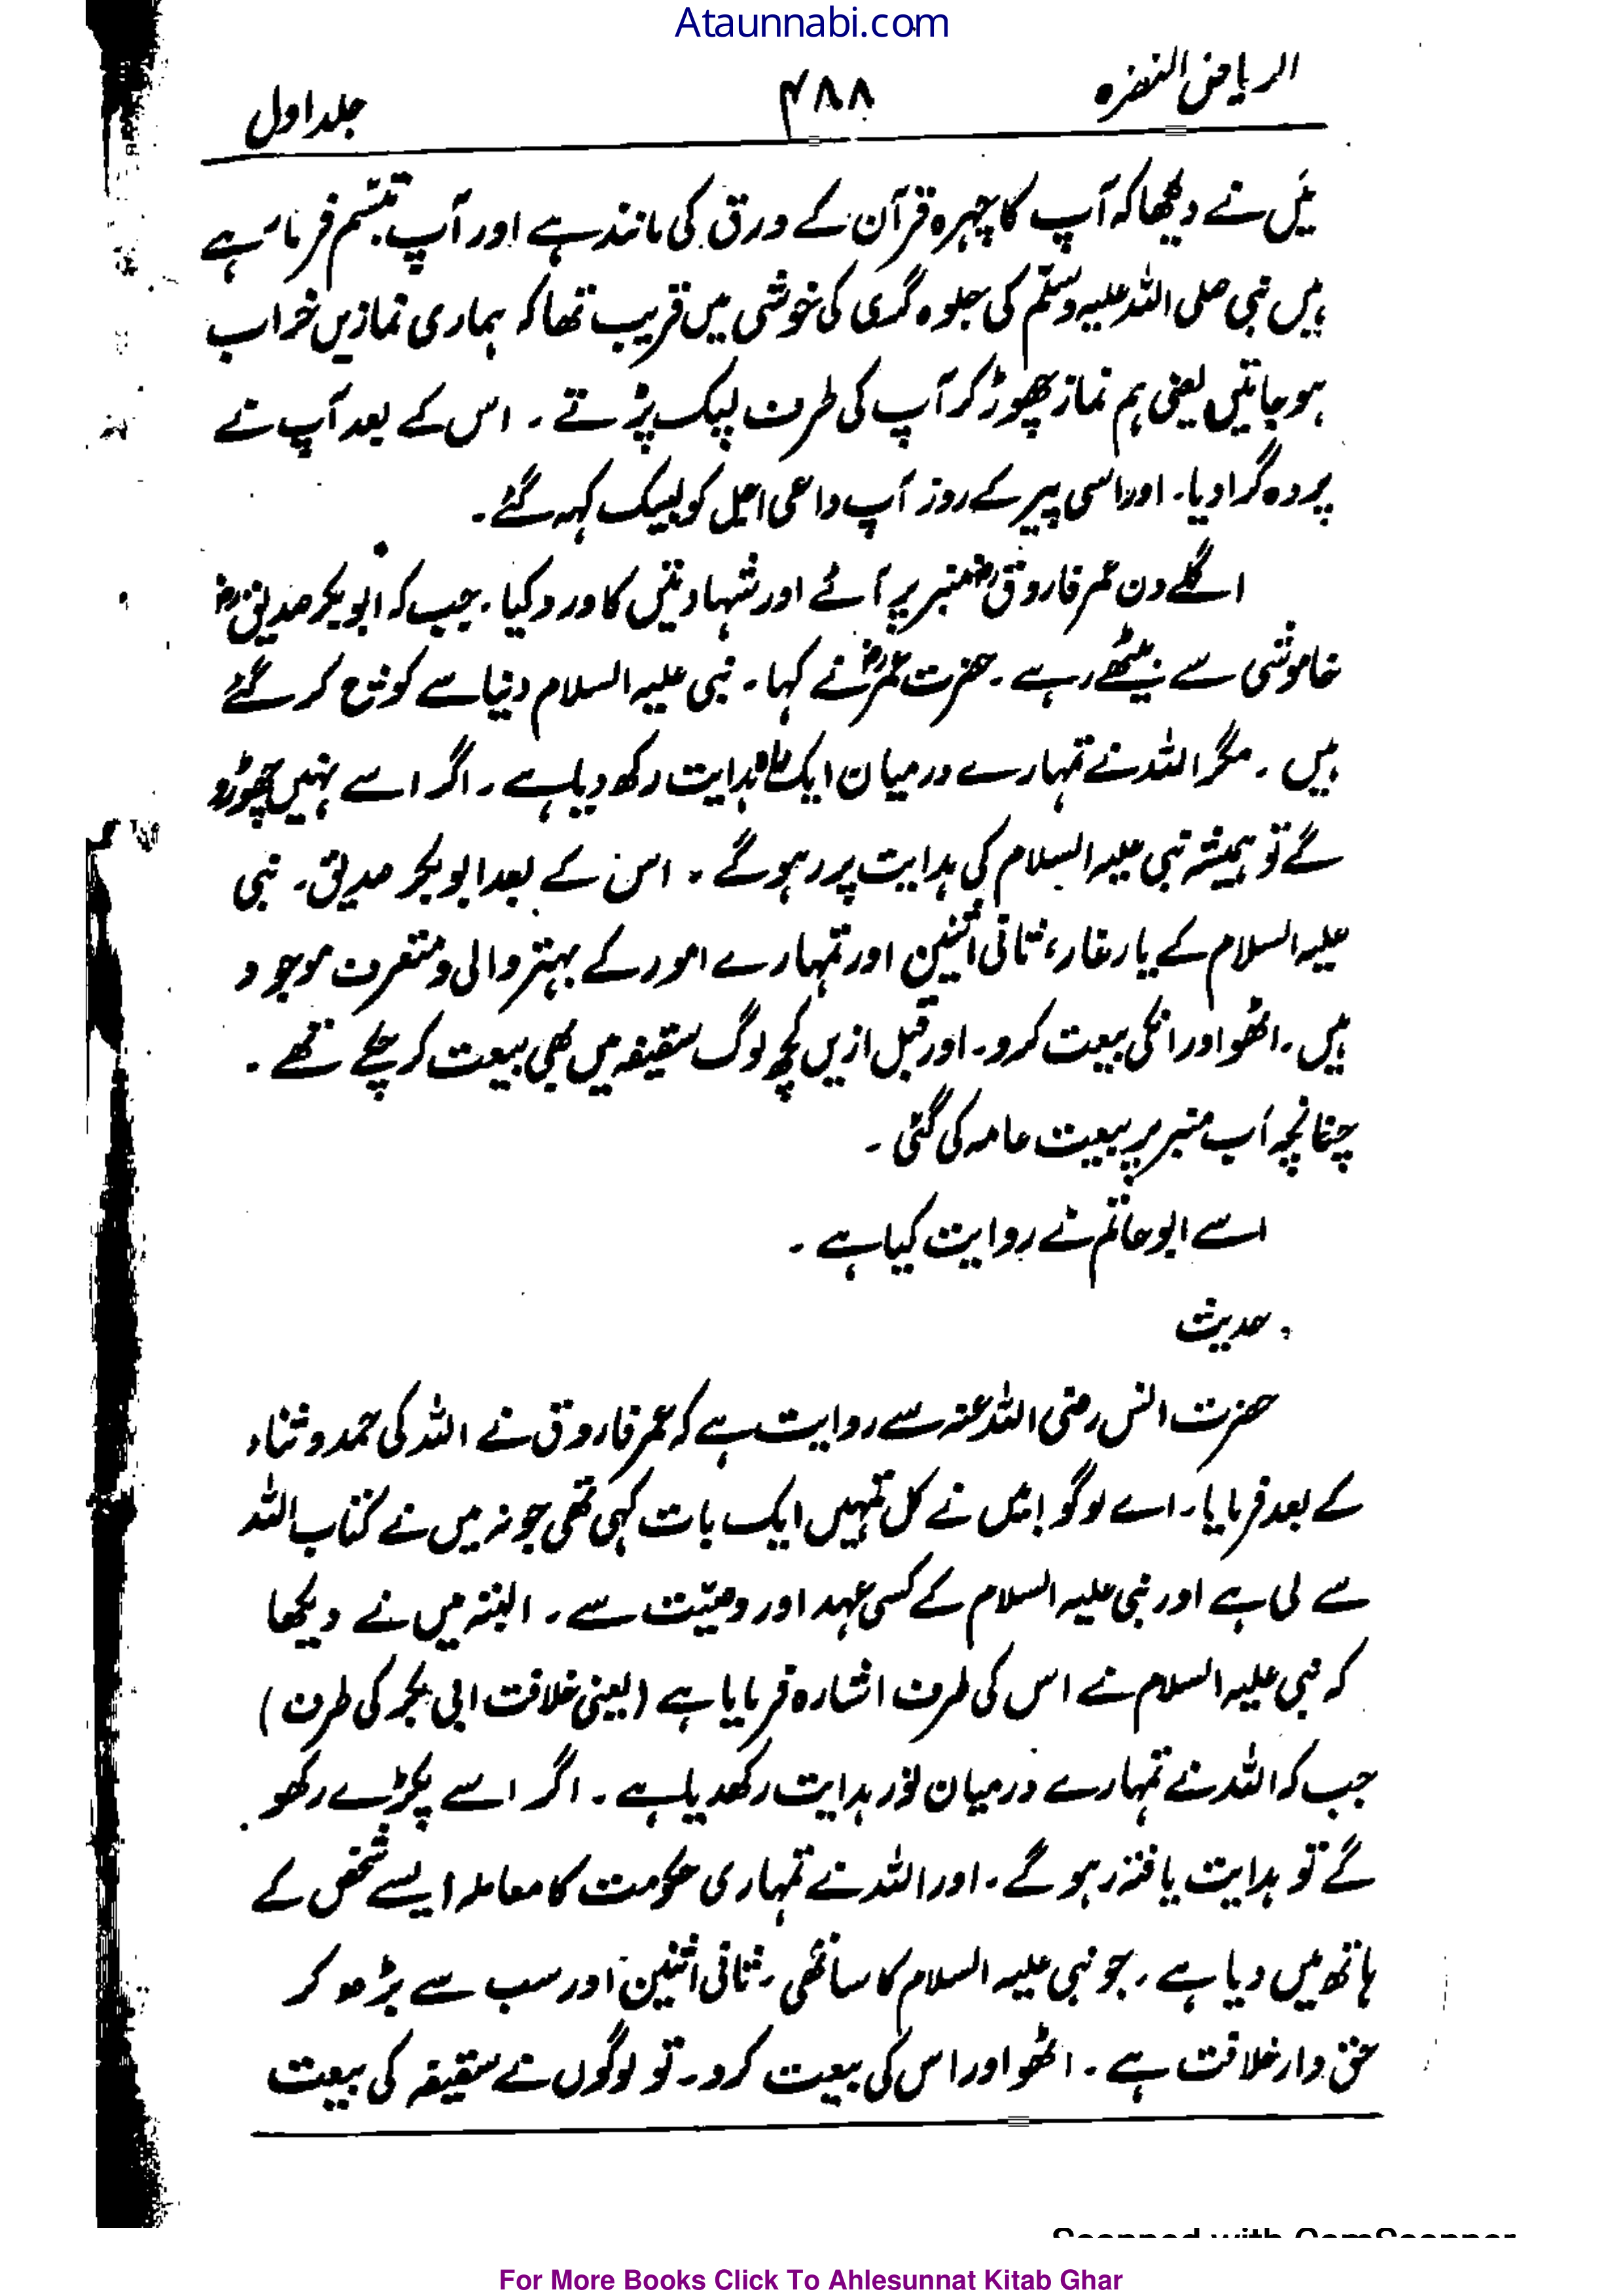 Ataunnabi.com
الریاض النضرہ ۴۸۸ جلد اول
میں نے دیکھا کہ آپ کا چہرہ قرآن کے ورق کی مانند ہے اور آپ تبسّم فرما رہے
ہیں نبی صلی اللہ علیہ وسلّم کی جلوہ گری کی خوشی میں قریب تھا کہ ہماری نمازیں خراب
ہو جاتیں یعنی ہم نماز چھوڑ کر آپ کی طرف لپک پڑتے ۔ اس کے بعد آپ نے
پردہ گرا دیا۔ اور اسی پیر کے روز آپ داعی اجل کو لبیک کہہ گئے ۔
اگلے دن عمر فاروقؓ منبر پر آئے اور شہادتیں کا ورد کیا ۔ جب کہ ابوبکر صدیقؓ
خاموشی سے بیٹھے رہے ۔ حضرت عمرؓ نے کہا ۔ نبی علیہ السلام دنیا سے کوئچ کر گئے
ہیں ۔ مگر اللہ نے تمہارے درمیان ایک ہدایت رکھ دیا ہے ۔ اگر اسے نہیں چھوڑو
گے تو ہمیشہ نبی علیہ السلام کی ہدایت پر رہو گے ۔ اس کے بعد ابوبکر صدیق ۔ نبی
علیہ السلام کے یار غار، ثانی اثنین اور تمہارے امور کے بہتر والی و متصرف موجود
ہیں ۔ اٹھو اور انکی بیعت کرو ۔ اور قبل ازیں کچھ لوگ سقیفہ میں بھی بیعت کر چکے تھے ۔
چنانچہ اَب منبر پر بیعت عامہ کی گئی ۔
اسے ابو حاتم نے روایت کیا ہے ۔
حدیث
حضرت انس رضی اللہ عنہ سے روایت ہے کہ عمر فاروق نے اللہ کی حمد و ثناء
کے بعد فرمایا۔ اے لوگو! میں نے کل تمہیں ایک بات کہی تھی جو نہ میں نے کتاب اللہ
سے لی ہے اور نبی علیہ السلام کے کسی عہد اور وصیّت سے ۔ البتہ میں نے دیکھا
کہ نبی علیہ السلام نے اس کی طرف اشارہ فرمایا ہے (یعنی خلافت ابی بکر کی طرف)
جب کہ اللہ نے تمہارے درمیان نور ہدایت رکھدیا ہے ۔ اگر اسے پکڑے رکھو
گے تو ہدایت یافتہ رہو گے ۔ اور اللہ نے تمہاری حکومت کا معاملہ ایسے شخص کے
ہاتھ میں دیا ہے ۔ جو نبی علیہ السلام کا ساتھی ۔ ثانی اثنین اور سب سے بڑھ کر
حق دار خلافت ہے ۔ اٹھو اور اس کی بیعت کرو ۔ تو لوگوں نے سقیفہ کی بیعت
Scanned with CamScanner
For More Books Click To Ahlesunnat Kitab Ghar